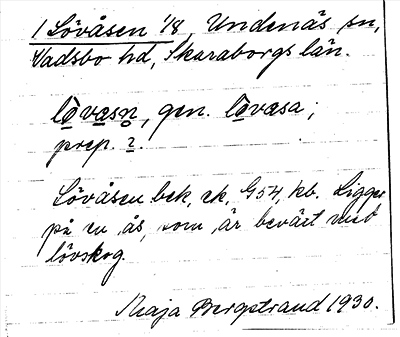 1 Lövåsen 1/8, Undenäs sn,
Vadsbo hd, Skaraborgs län.
lòvasn, gen. lòvasa;
prep. 2.
Lövåsen bek, ek, G54, kb. Ligger
på en ås, som är beväxt med
lövskog.
Maja Bergstrand 1930.